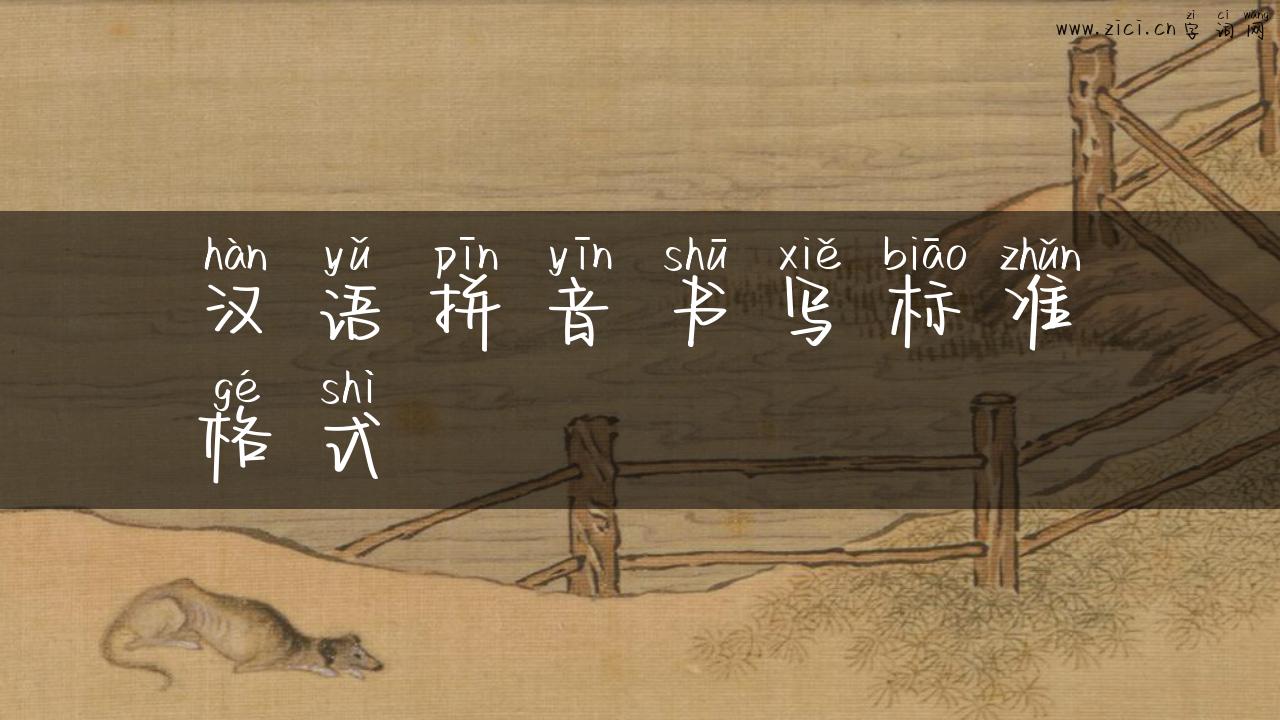 zi ci wang
www.zici.cn 字词网
hàn yǔ pīn yīn shū xiě biāo zhǔn
汉语拼音书写标准
gé shì
格式